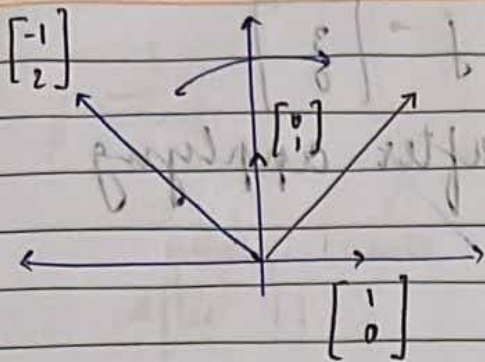 [-1
2]
[0
1]
[1
0]